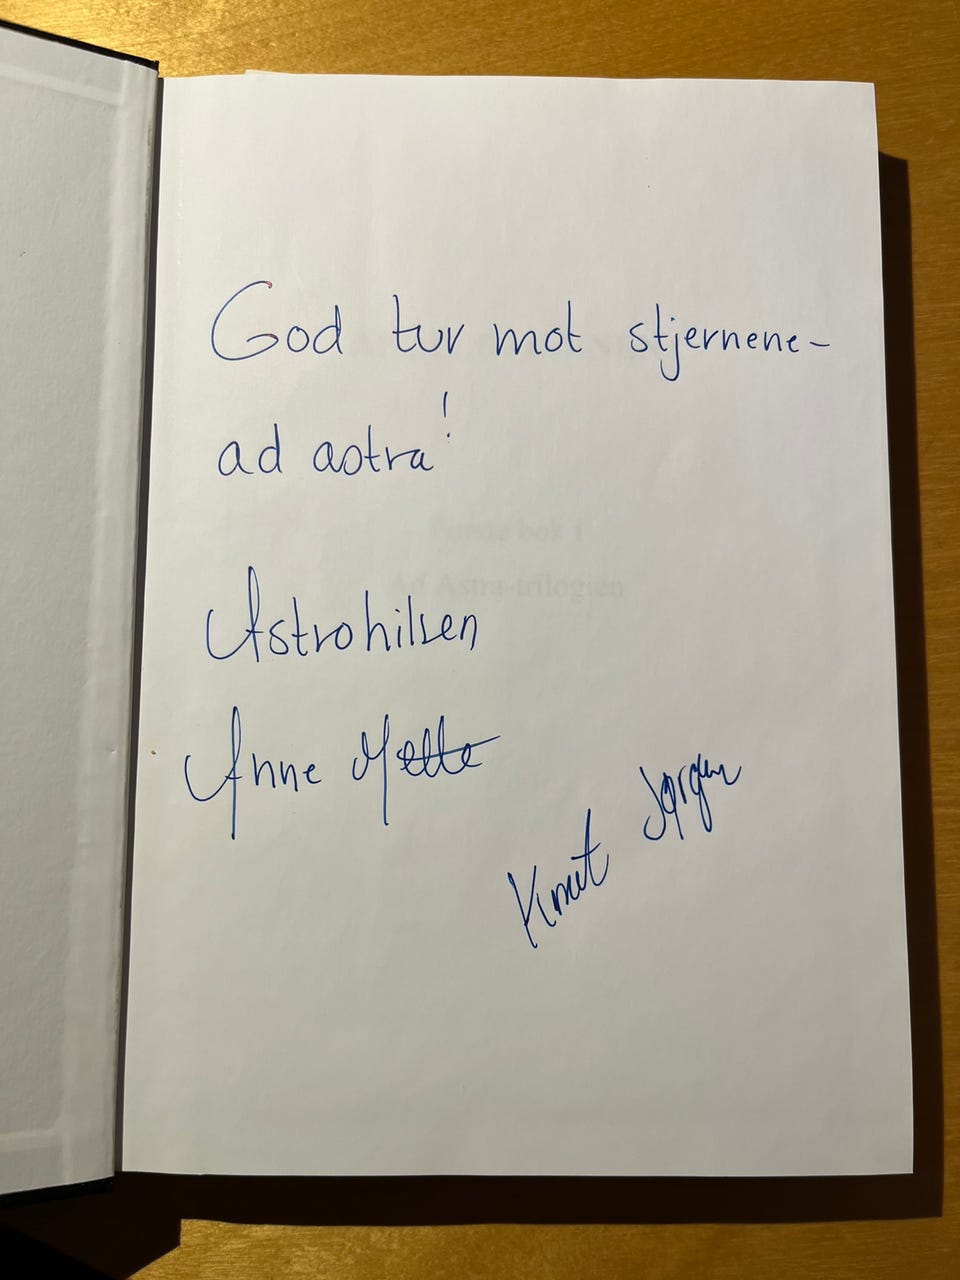 God tur mot stjernene-
ad astra!
Første bok i
Ad Astra-trilogien
Astrohilsen
Anne Mette
Knut Jørgen